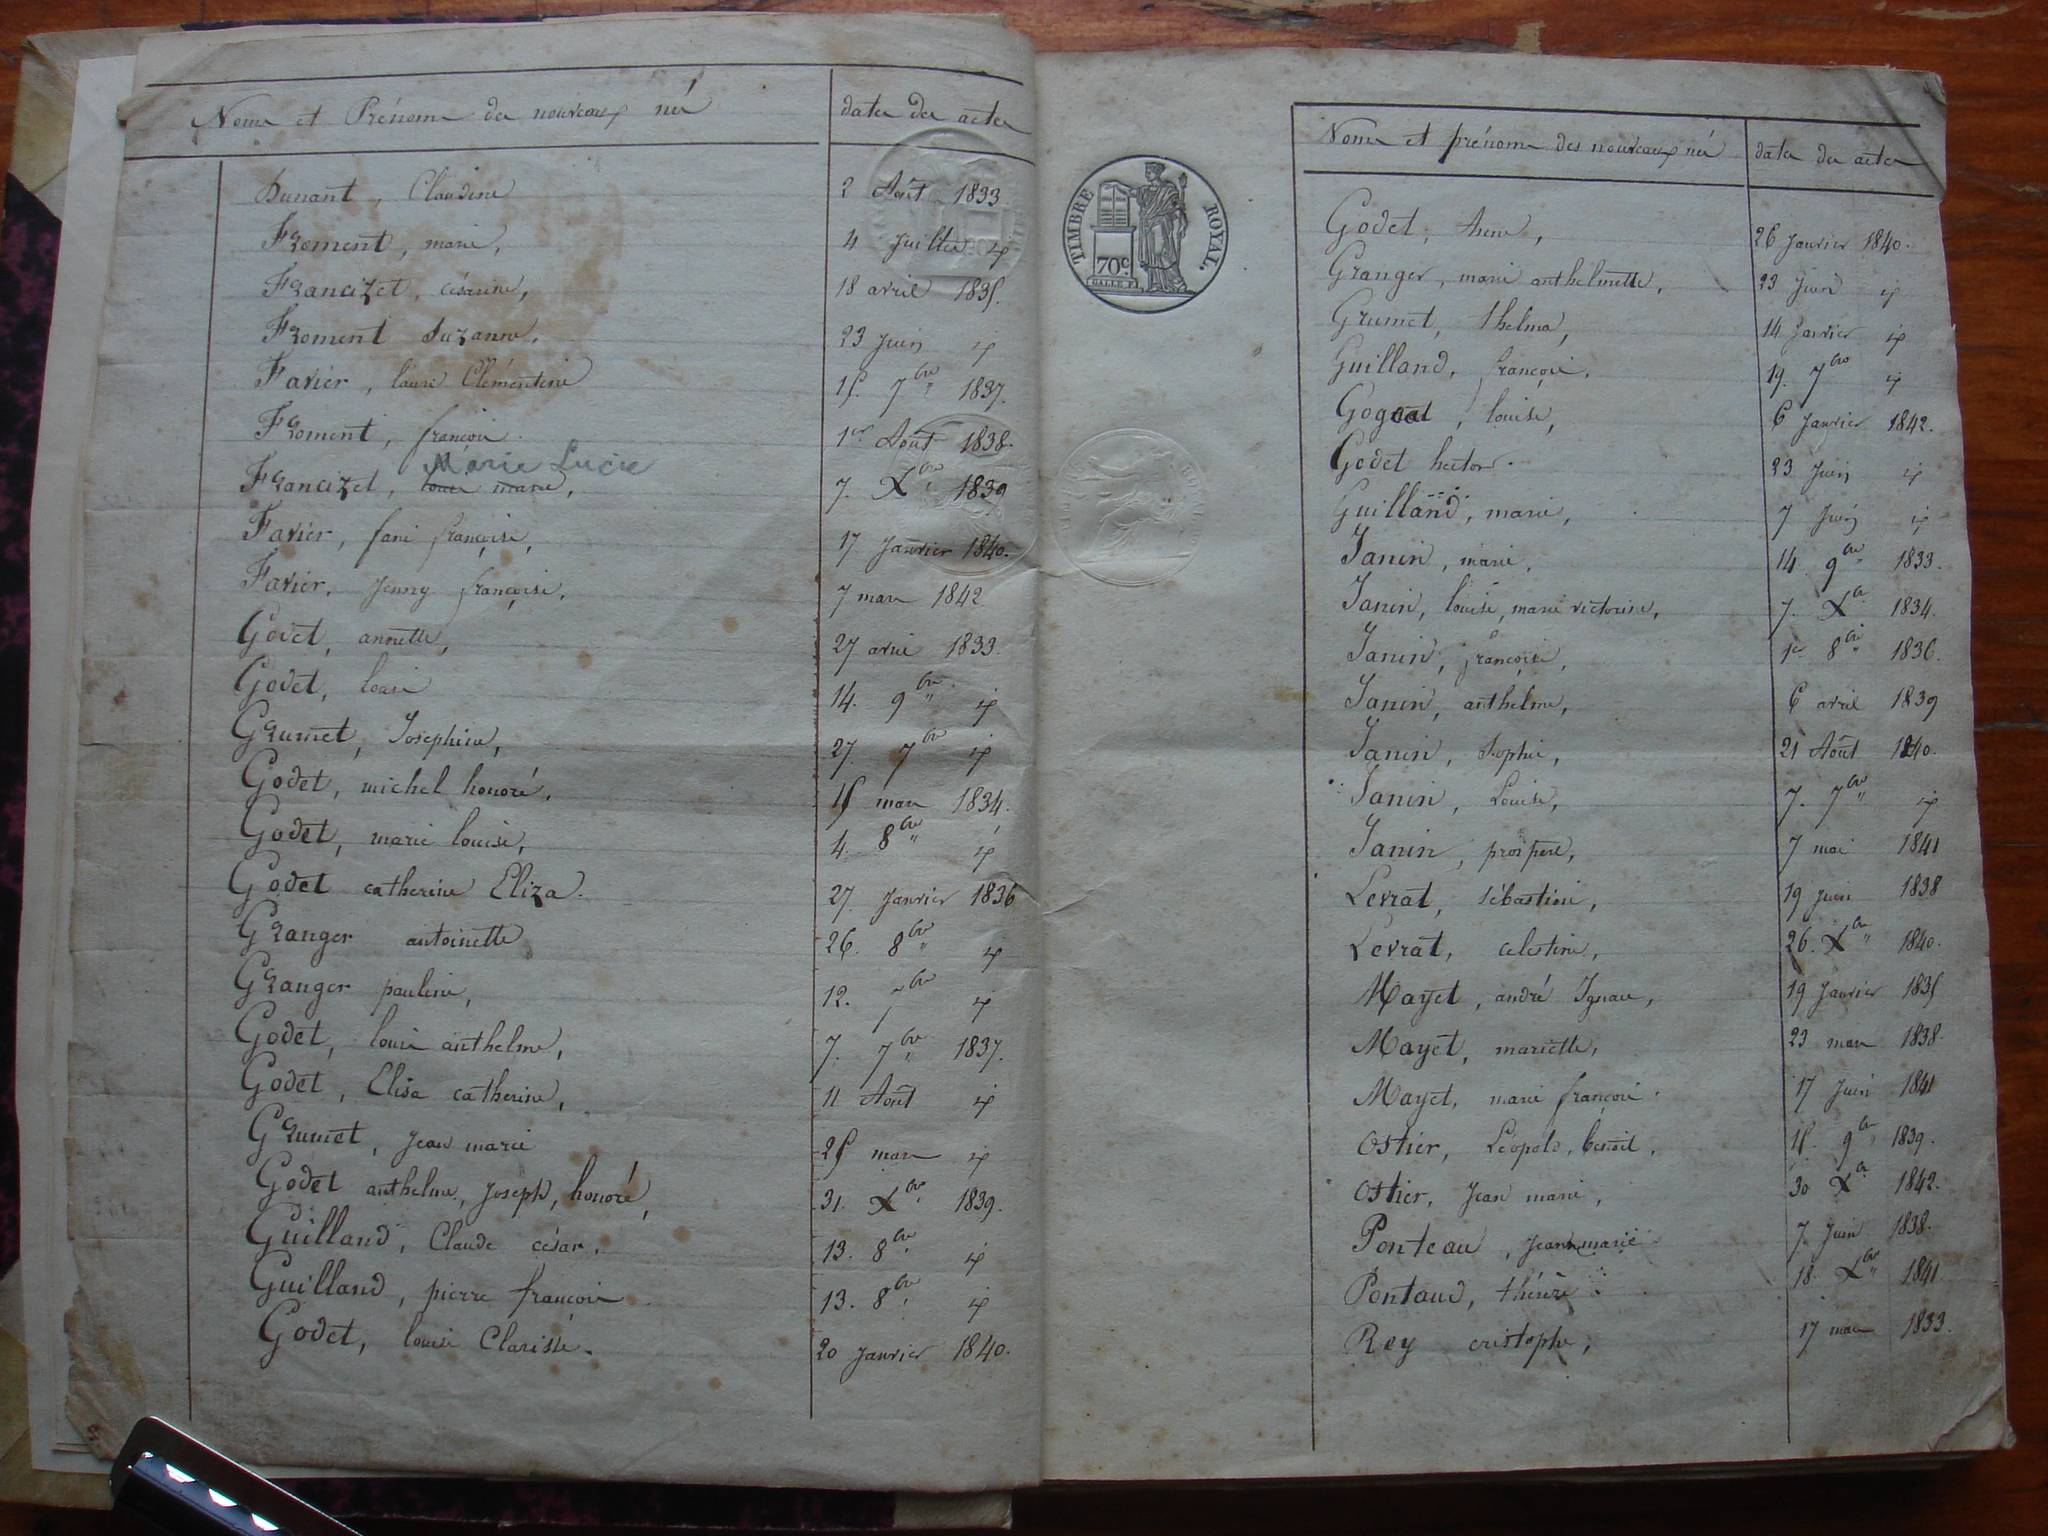 Noms et Prénoms des nouveaux nés dates des actes
Dunant, Claudine 2 Août 1833.
Froment, marie, 4 Juillet id
Francizet, césarine, 18 avril 1835.
Froment Suzanne, 23 Juin id
Favier, laure Clémentine 15. 7bre 1837.
Froment, françois. 1er Août 1838.
Marie Lucie
Francizet, marie, 7. Xbre 1839
Favier, fani françoise, 17 Janvier 1840.
Favier, Jenny françoise, 7 mars 1842
Godet, annette, 27 avril 1833.
Godet, louis 14. 9bre id
Grumet, Josephine, 27. 7bre id
Godet, michel honoré, 15 mars 1834.
Godet, marie louise, 4. 8bre id
Godet catherine Eliza. 27. Janvier 1836
Granger antoinette 26. 8bre id
Granger pauline, 12. 7bre id
Godet, louis anthelme, 7. 7bre 1837.
Godet, Elisa catherine, 11 Août id
Grumet, Jean marie 25 mars id
Godet anthelme, Joseph, honoré, 31. Xbre 1839.
Guilland, Claude césar, 13. 8bre id
Guilland, pierre françois 13. 8bre id
Godet, louise Clarisse. 20 Janvier 1840.
TIMBRE ROYAL.
70c
Noms et prénoms des nouveaux nés dates des actes
Godet, 26 Janvier 1840.
Granger, marie anthelmette, 23 Juin id
Grumet, thelma, 14 Janvier id
Guilland, françois, 19. 7bre id
Gogat, louise, 6 Janvier 1842.
Godet hector. 23 Juin id
Guilland, marie, 7 Juin id
Janin, marie, 14 9bre 1833.
Janin, louise, marie victorine, 7. Xbre 1834.
Janin, françoise, 1er 8bre 1836.
Janin, anthelme, 6 avril 1839
Janin, Sophie, 21 Août 1840.
Janin, Louise, 7. 7bre id
Janin, prospère, 7 mai 1841
Levrat, sébastien, 19 Juin 1838
Levrat, celestine, 26. Xbre 1840.
Mayet, andré Ignace, 19 Janvier 1835
Mayet, mariette, 23 mars 1838.
Mayet, marie françois. 17 Juin 1841
Ostier, Léopold, benoit, 15. 9bre 1839.
Ostier, Jean marie, 30 Xbre 1842.
Ponteau, Jean marie 7. Juin 1838.
Pontaud, thérèse 18. Xbre 1841
Rey cristophe, 17 mars 1833.